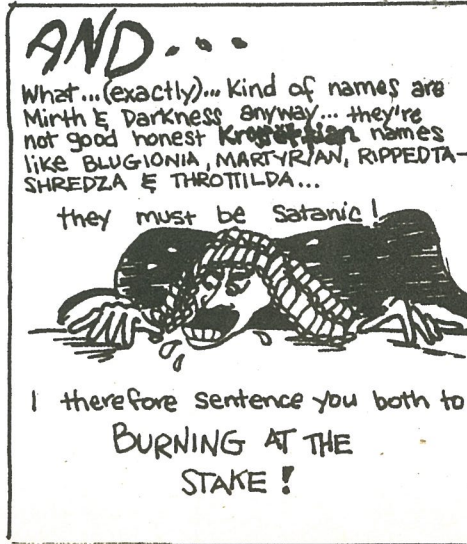 AND...
What...(exactly)... Kind of names are
Mirth & Darkness anyway... they're
not good honest names
like BLUGIONIA, MARTYRIAN, RIPPEDTA-
SHREDZA & THROTTILDA...
they must be Satanic!
I therefore sentence you both to
BURNING AT THE
STAKE!